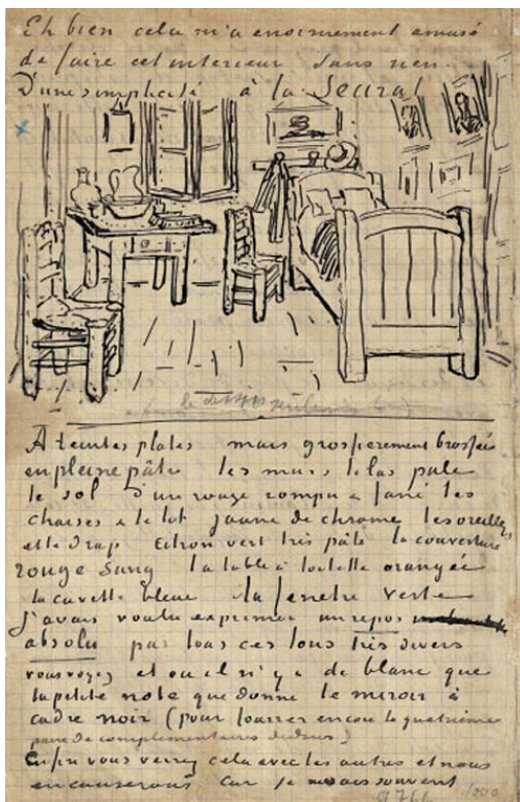 Eh bien cela m'a enormement amusé
de faire cet interieur sans rien.
D'une simplicité à la Seurat
À teintes plates mais grossierement brossées
en pleine pâte les murs lilas pale
le sol d'un rouge rompu & fané les
chaises & le lit jaune de chrome les oreillers
et le drap citron vert très pâle la couverture
rouge sang la table à toilette orangée
la cuvette bleue la fenetre verte
J'avais voulu exprimer un repos
absolu par tous ces tons très divers
vous voyez et ou il n'y a de blanc que
la petite note que donne le miroir à
cadre noir (pour fourrer encore la quatrième
paire de complementaires dedans)
Enfin vous verrez cela avec les autres et nous
en causerons car je ne sais souvent